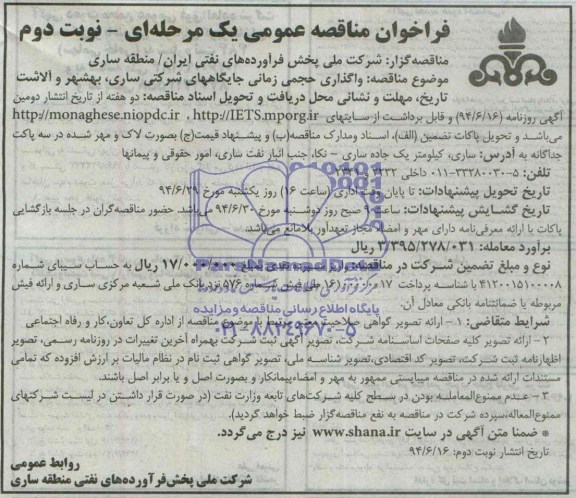 فراخوان مناقصه عمومی یک مرحله‌ای - نوبت دوم
مناقصه‌گزار: شرکت ملی پخش فرآورده‌های نفتی ایران/ منطقه ساری
موضوع مناقصه: واگذاری حجمی زمانی جایگاههای شرکتی ساری، بهشهر و آلاشت
تاریخ، مهلت و نشانی محل دریافت و تحویل اسناد مناقصه: دو هفته از تاریخ انتشار دومین
آگهی روزنامه (۹۴/۶/۱۶) و قابل برداشت از سایتهای http://IETS.mporg.ir ، http://monaghese.niopdc.ir
می‌باشد و تحویل پاکات تضمین (الف)، اسناد ومدارک مناقصه(ب) و پیشنهاد قیمت(ج) بصورت لاک و مهر شده در سه پاکت
جداگانه به آدرس: ساری، کیلومتر یک جاده ساری - نکا، جنب انبار نفت ساری، امور حقوقی و پیمانها
تلفن: ۵-۳۳۲۸۰۰۳۰-۰۱۱ داخلی
تاریخ تحویل پیشنهادات: تا پایان وقت اداری (ساعت ۱۶) روز یکشنبه مورخ ۹۴/۶/۲۹
تاریخ گشایش پیشنهادات: ساعت ۹ صبح روز دوشنبه مورخ ۹۴/۶/۳۰ می‌باشد. حضور مناقصه‌گران در جلسه بازگشایی
پاکات با ارائه معرفی‌نامه دارای مهر و امضاء مجاز تعهدآور بلامانع می‌باشد.
برآورد معامله: ۳/۳۹۵/۲۷۸/۰۳۱ ریال
نوع و مبلغ تضمین شرکت در مناقصه: ۱۷/۰۰۰/۰۰۰ ریال به حساب سیبای شماره
۴۱۲۰۰۱۵۱۰۰۰۸ با شناسه پرداخت ۱۷ شماره ۵۷۶ نزد بانک ملی شعبه مرکزی ساری و ارائه فیش
مربوطه یا ضمانتنامه بانکی معادل آن.
شرایط متقاضی: ۱ - ارائه تصویر گواهی صلاحیت معتبر مرتبط با موضوع مناقصه از اداره کل تعاون،کار و رفاه اجتماعی
۲ - ارائه تصویر کلیه صفحات اساسنامه شرکت، تصویر آگهی ثبت شرکت بهمراه آخرین تغییرات در روزنامه رسمی، تصویر
اظهارنامه ثبت شرکت، تصویر کد اقتصادی، تصویر شناسه ملی، تصویر گواهی ثبت نام در نظام مالیات بر ارزش افزوده که تمامی
مستندات ارائه شده در مناقصه میبایستی ممهور به مهر و امضاءپیمانکار و بصورت اصل و یا برابر اصل باشند.
۳ - عدم ممنوع‌المعامله بودن در سطح کلیه شرکت‌های تابعه وزارت نفت (در صورت قرار داشتن در لیست شرکتهای
ممنوع‌المعاله،سپرده شرکت در مناقصه به نفع مناقصه‌گزار ضبط خواهد گردید).
* ضمنا متن آگهی در سایت www.shana.ir نیز درج می‌گردد.
تاریخ انتشار نوبت دوم: ۹۴/۶/۱۶
روابط عمومی
شرکت ملی پخش‌فرآورده‌های نفتی منطقه ساری
ParsNamadData
پایگاه اطلاع رسانی مناقصه و مزایده
۰۲۱-۸۸۳۴۹۶۷۰-۵